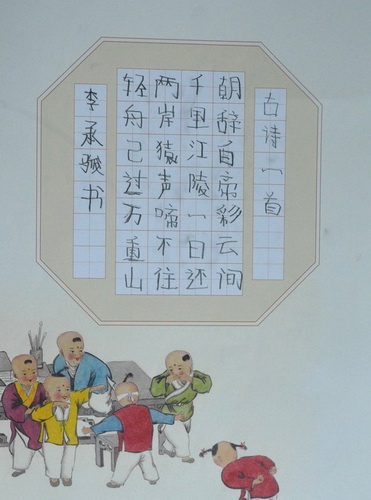 古诗一首
朝辞白帝彩云间
千里江陵一日还
两岸猿声啼不住
轻舟已过万重山
李承骏书